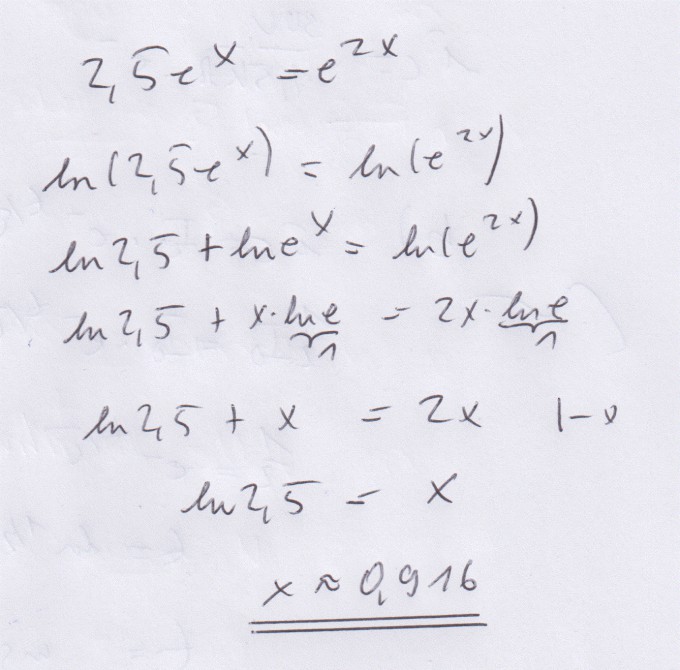 2,5e^x = e^2x
ln(2,5e^x) = ln(e^2x)
ln2,5 + lne^x = ln(e^2x)
ln2,5 + x·lne = 2x·lne
1 1
ln2,5 + x = 2x |-x
ln2,5 = x
x ≈ 0,916